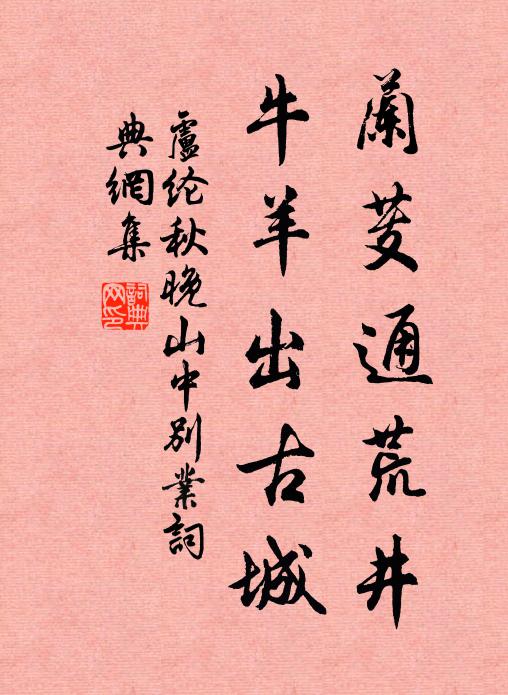 蘭芰通荒井
牛羊出古城
盧纶秋晚山中别業詞
典網集
詞典网印